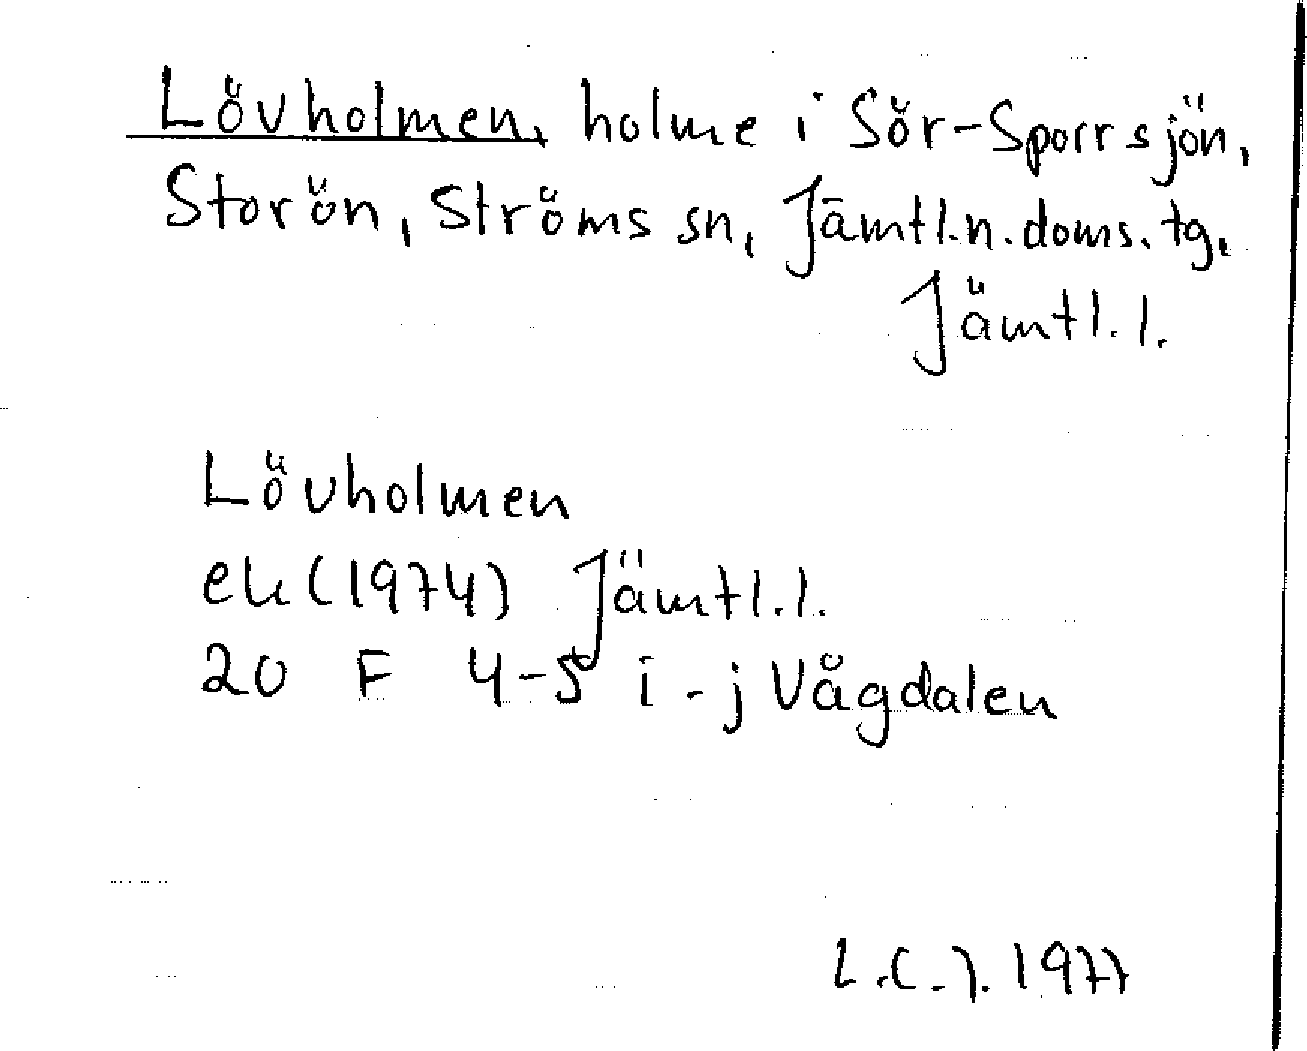 Lövholmen, holme i Sör-Sporrsjön,
Storön, Ströms sn, Jämtl.n.doms.tg,
Jämtl.l.
Lövholmen
ek (1974) Jämtl.l.
20 F 4-5 i-j Vågdalen
L.C.J. 1977